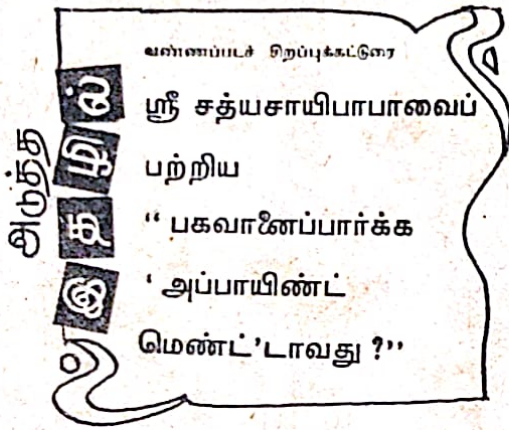 அடுத்த
இதழில்
வண்ணப்படச் சிறப்புக்கட்டுரை
ஸ்ரீ சத்யசாயிபாபாவைப்
பற்றிய
“ பகவானைப்பார்க்க
‘ அப்பாயிண்ட்
மெண்ட்’டாவது ?”